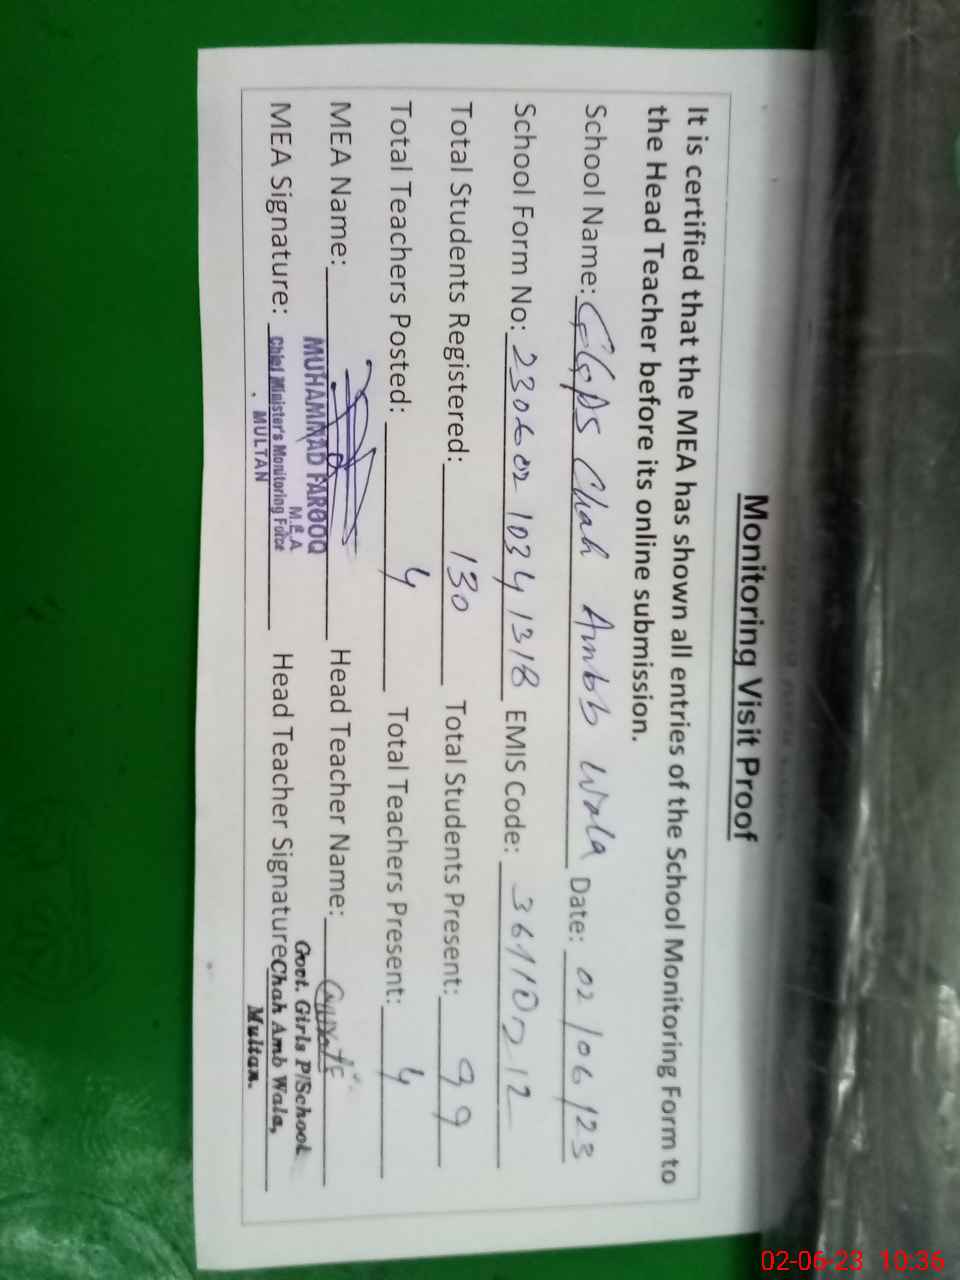 Monitoring Visit Proof
It is certified that the MEA has shown all entries of the School Monitoring Form to
the Head Teacher before its online submission.
School Name: GGPS Chah Ambb Wala Date: 02/06/23
School Form No: 230602 10341318 EMIS Code: 36110212
Total Students Registered: 130 Total Students Present: 99
Total Teachers Posted: 4 Total Teachers Present: 4
MEA Name: Head Teacher Name:
MUHAMMAD FAROOQ
M.E.A
Govt. Girls P/School
MEA Signature: Chief Minister's Monitoring Force Head Teacher Signature Chah Amb Wala,
MULTAN
Multan.
02-06-23 10:36